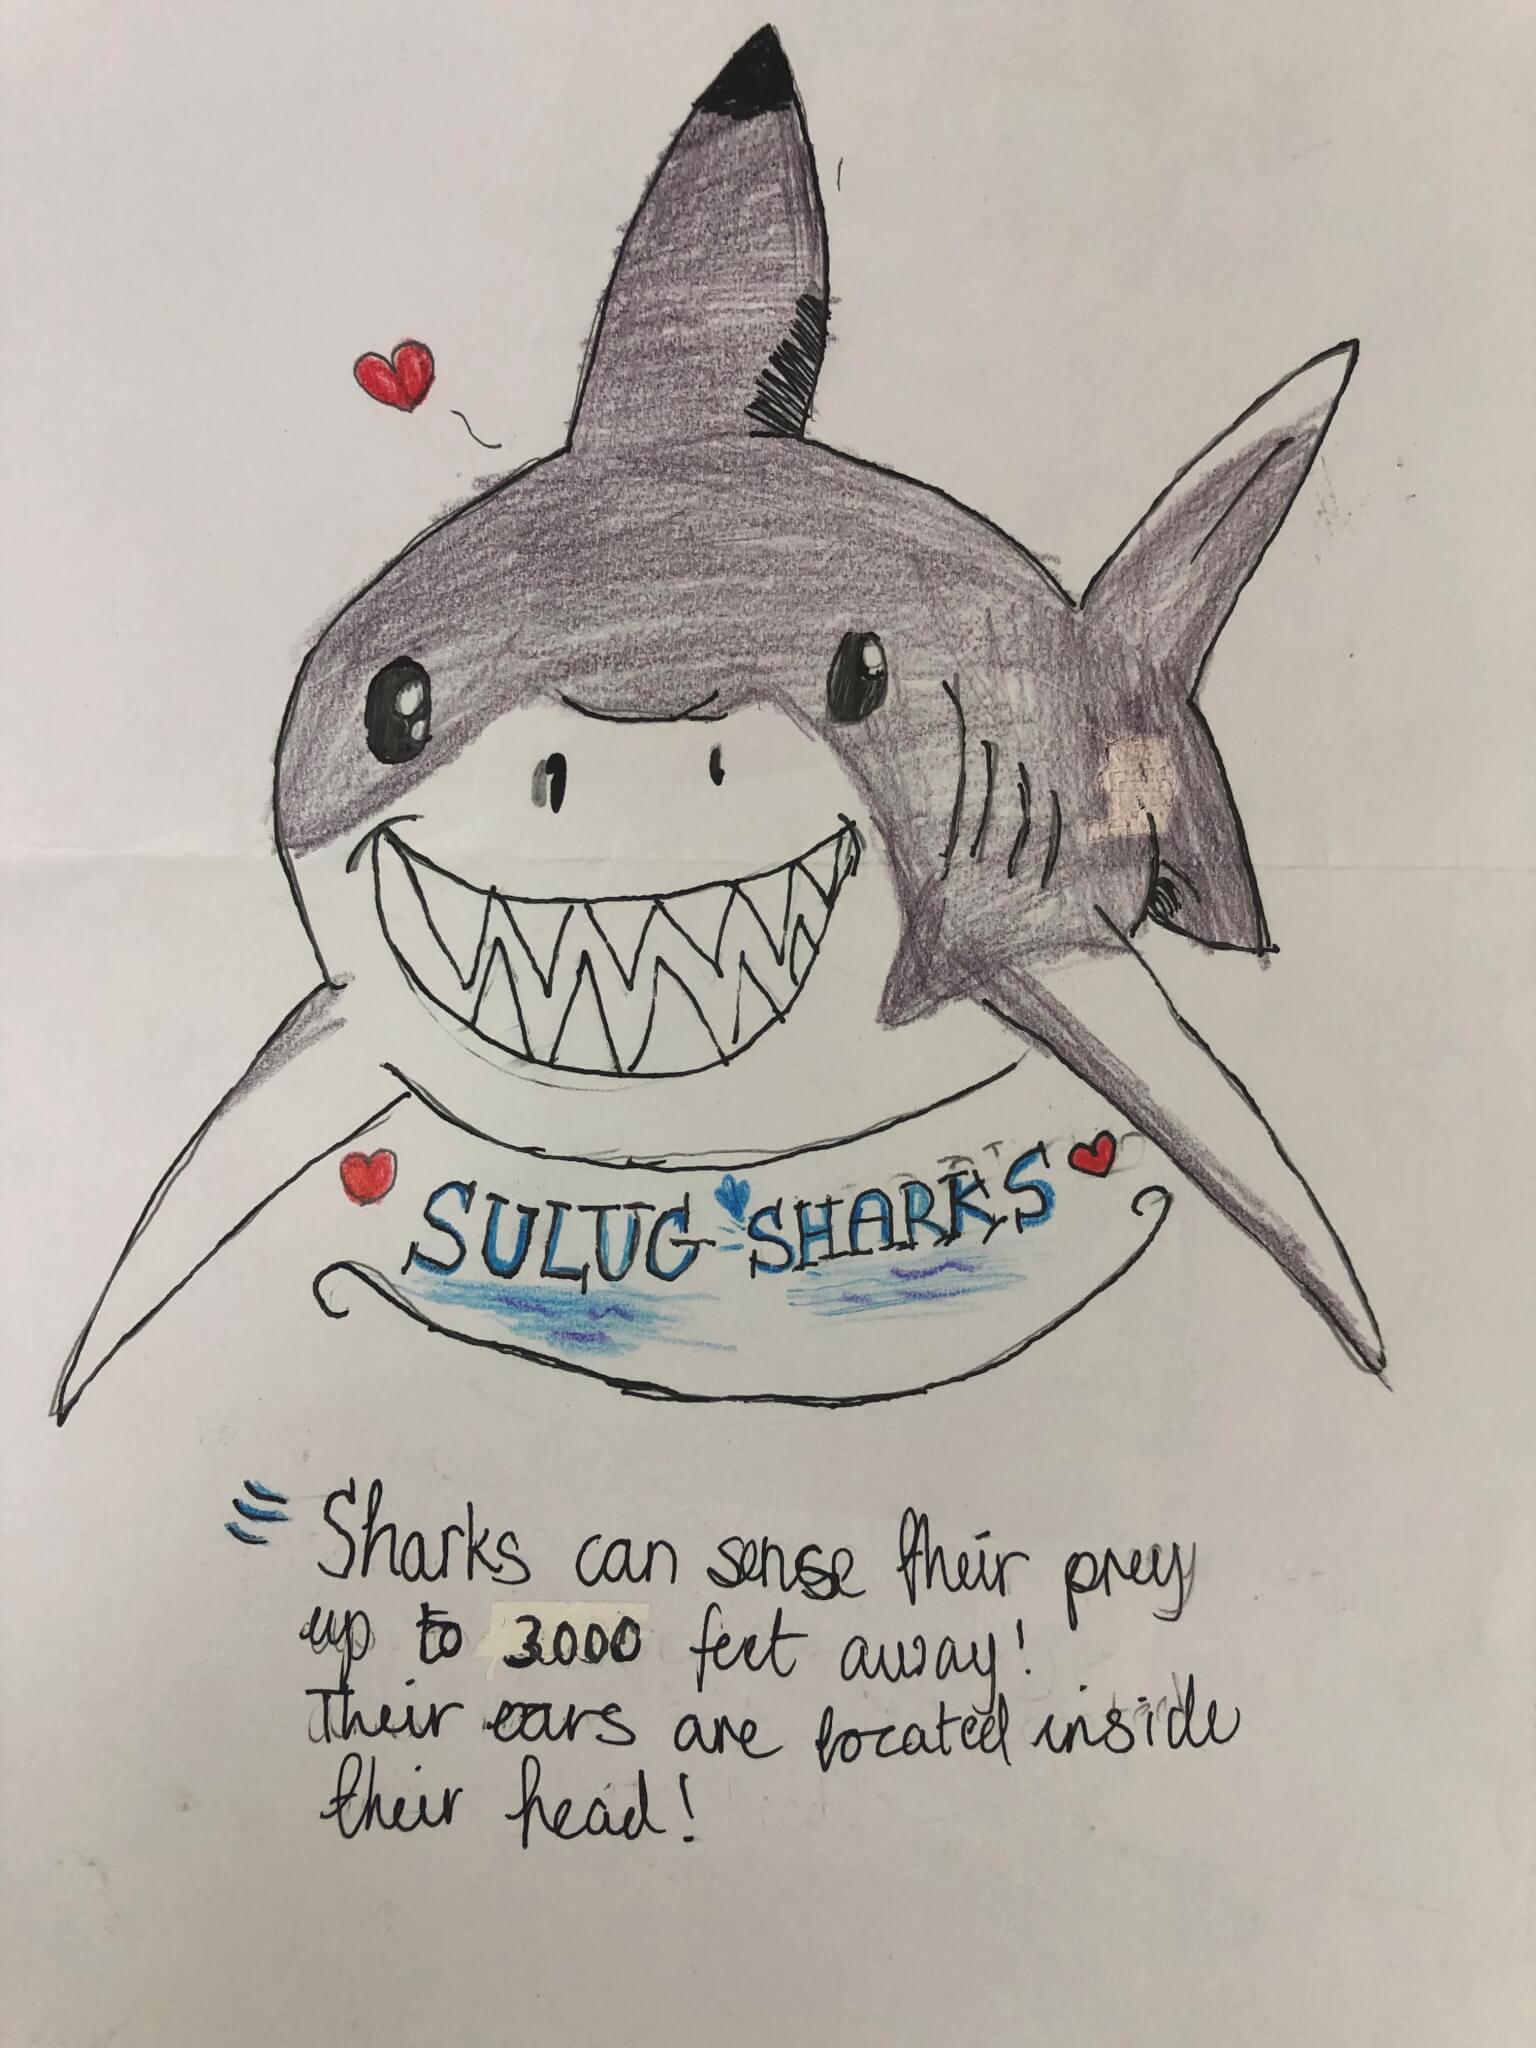 SULUG SHARKS
Sharks can sense their prey
up to 3000 feet away!
Their ears are located inside
their head!